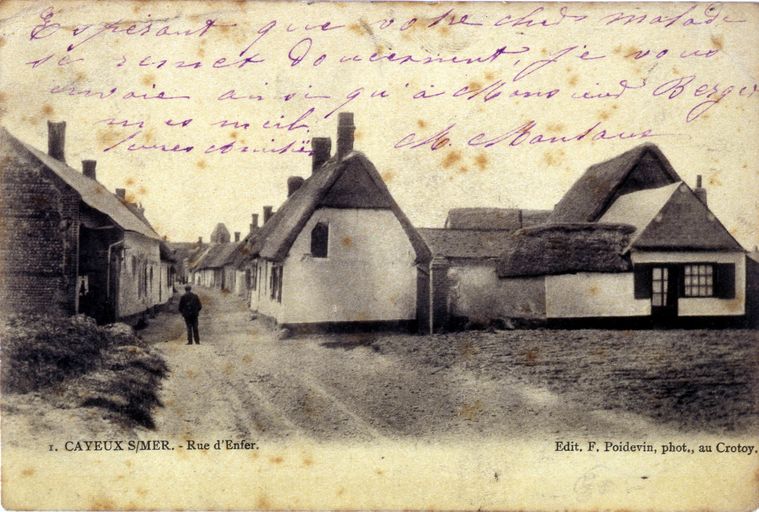 Espérant que votre cheds malade
se remet doucement, je vous
envoie ainsi qu'à Monsieur Berger
mes meill
sœures amitiés M. Montauv
1. CAYEUX S/MER. - Rue d'Enfer.
Edit. F. Poidevin, phot., au Crotoy.